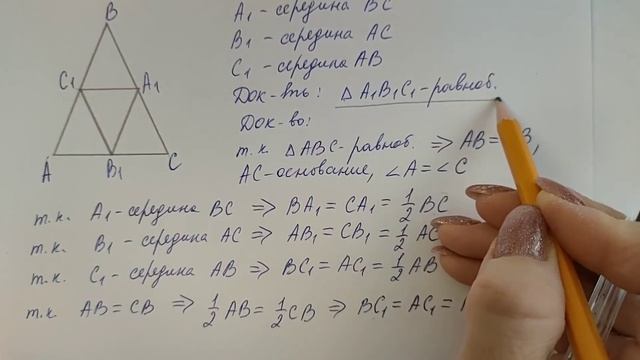 B
C₁
A₁
A
B₁
C
A₁ - середина BC
B₁ - середина AC
C₁ - середина AB
Док-ть: △ A₁B₁C₁ - равноб.
Док-во:
т.к. △ABC - равноб. ⇒ AB =
AC - основание, ∠A = ∠C
т.к. A₁ - середина BC ⇒ BA₁ = CA₁ = 1/2 BC
т.к. B₁ - середина AC ⇒ AB₁ = CB₁ = 1/2 AC
т.к. C₁ - середина AB ⇒ BC₁ = AC₁ = 1/2 AB
т.к AB = CB ⇒ 1/2 AB = 1/2 CB ⇒ BC₁ = AC₁ =